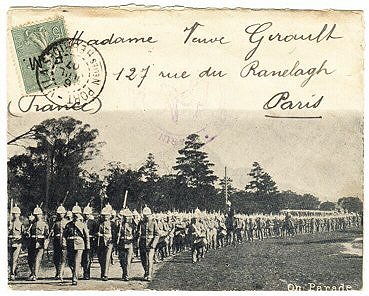 Madame Veuve Girault
127 rue du Ranelagh
Paris
(France)
On Parade